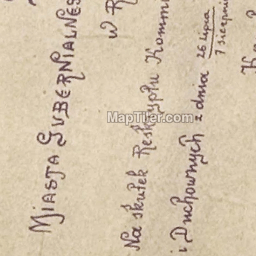 MIASTA GUBERNIALNE
W
Na skutek Reskryptu
i Duchownych z dnia 26 Lipca
7 Sierpni
MapTiler.com